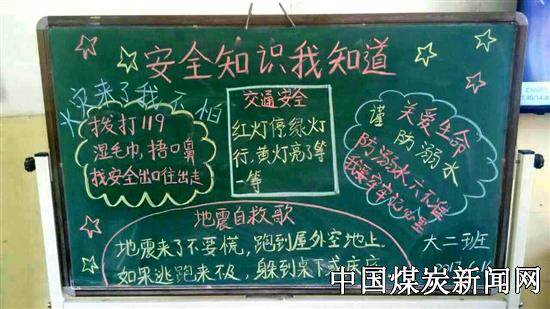 安全知识我知道
火灾来了我不怕
拨打119
湿毛巾,捂口鼻
找安全出口往出走
交通安全
红灯停绿灯
行,黄灯亮了等
一等
关爱生命
谨防溺水
防溺水六不准
我要牢牢记心里
地震自救歌
地震来了不要慌,跑到屋外空地上
如果逃跑来不及,躲到桌下
大二班
中国煤炭新闻网